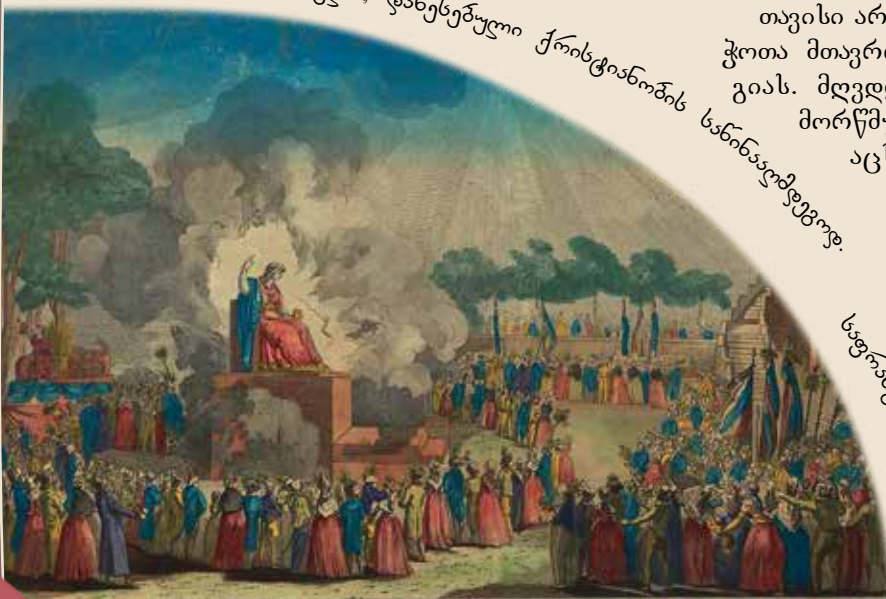 დაწესებული ქრისტიანობის საწინააღმდეგოდ.
თავისი არ
ჭოთა მთავრ
გიას. მღვდ
მორწმ
აც
საფრან